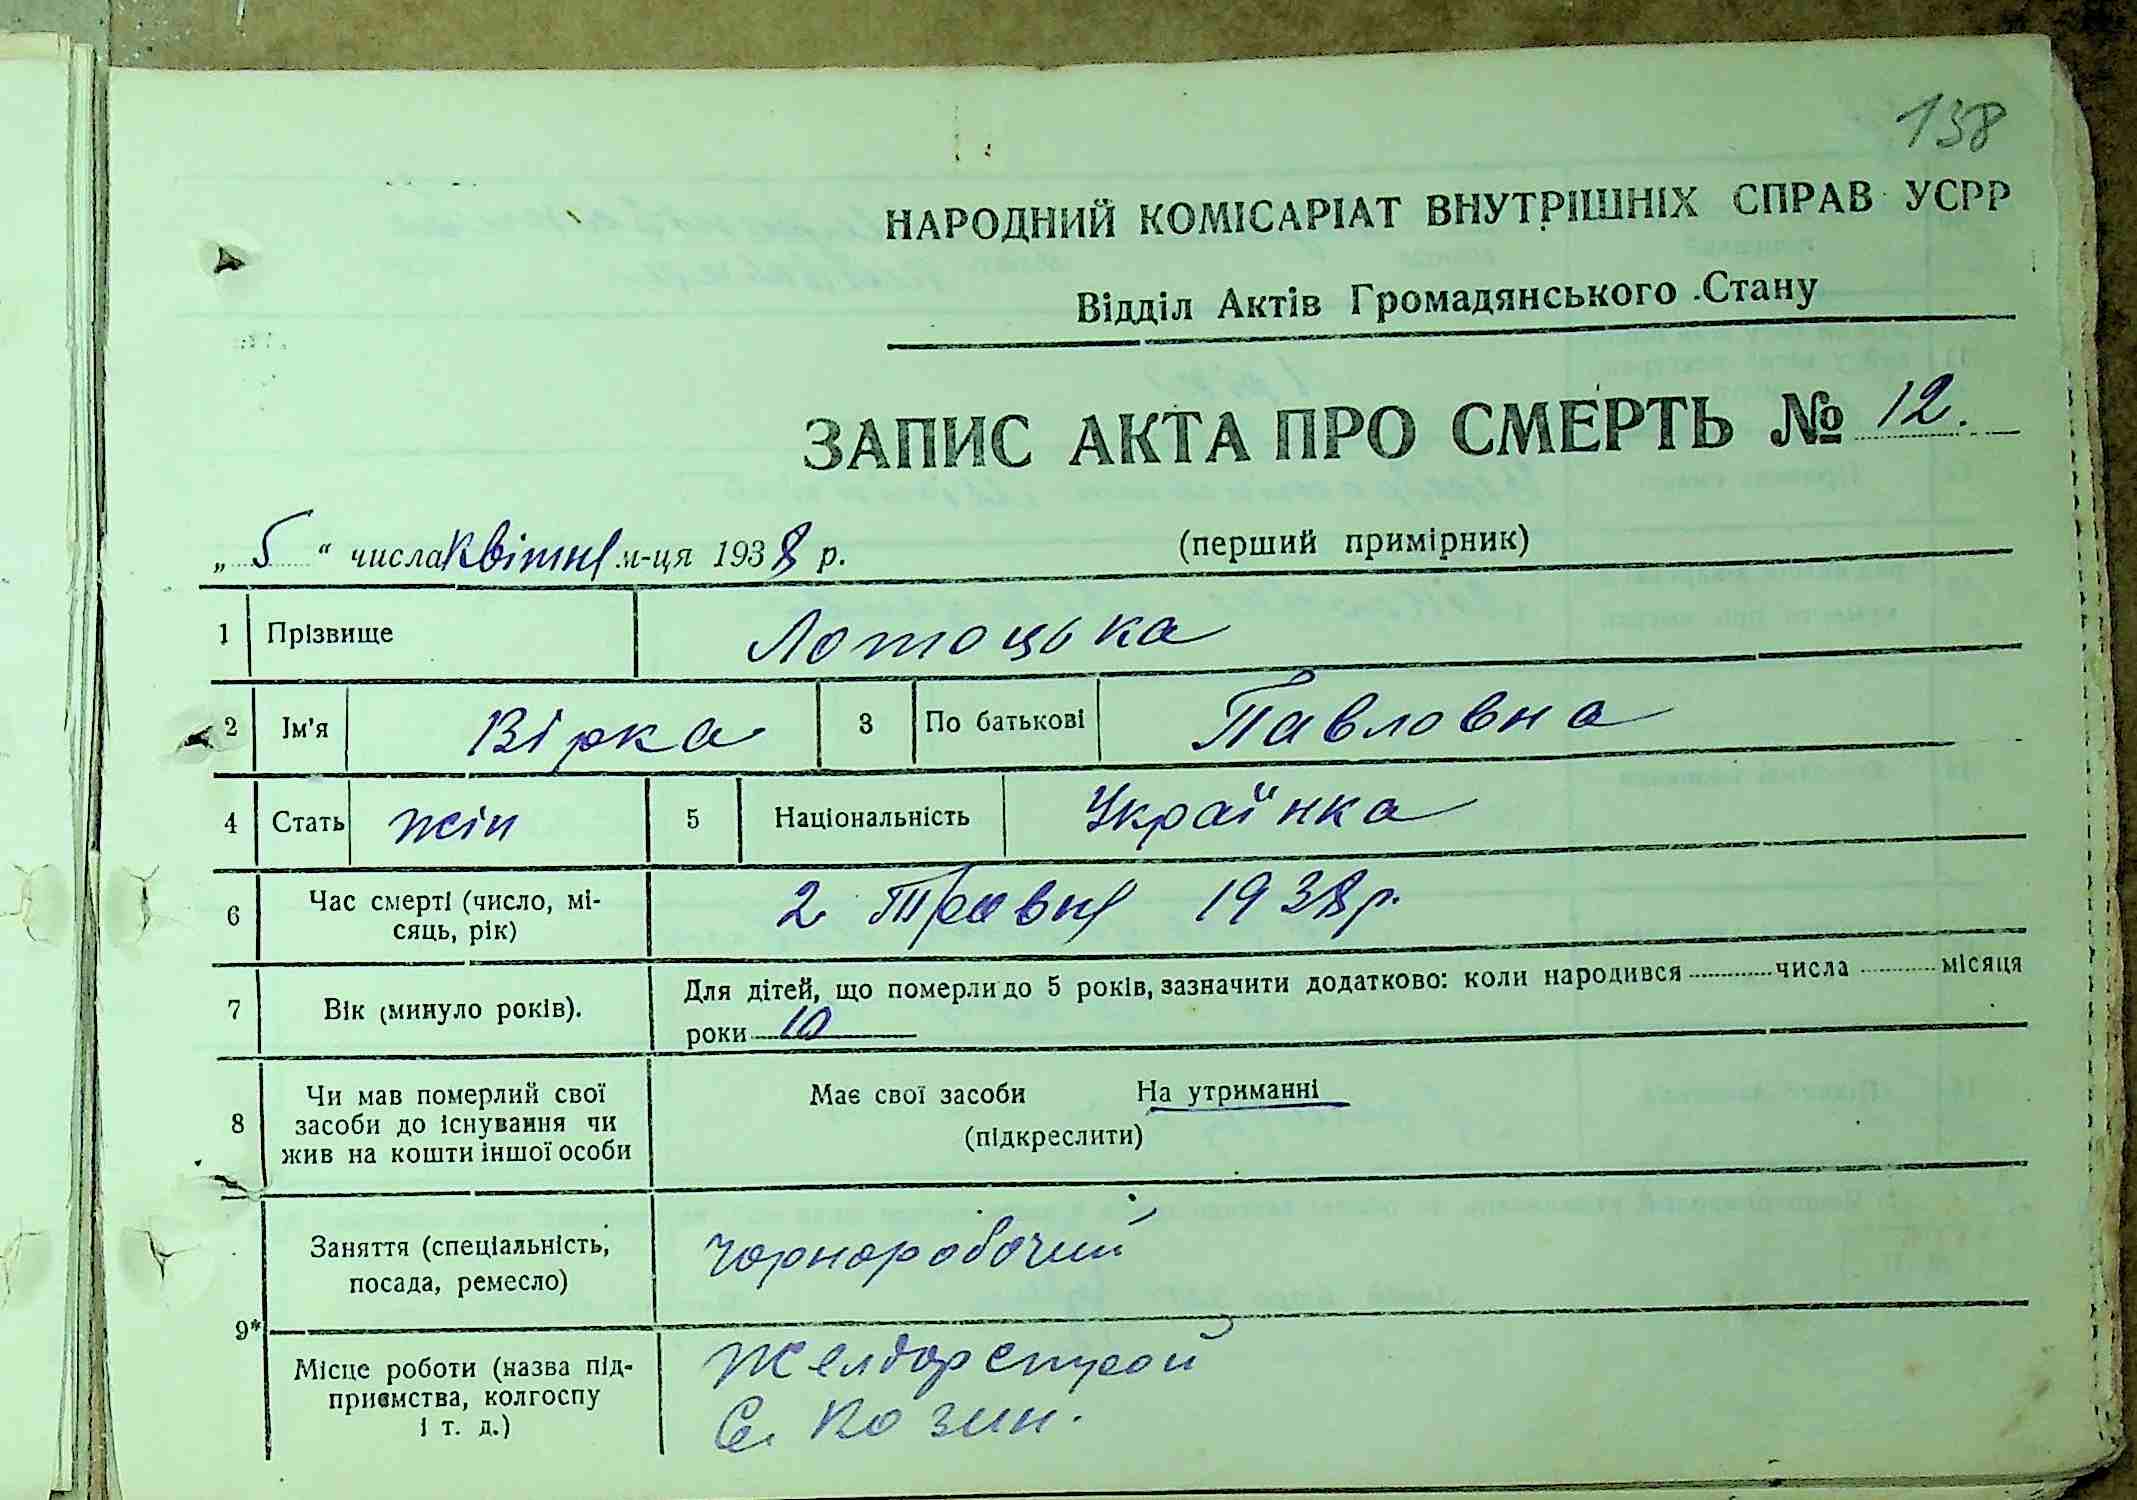 138
НАРОДНИЙ КОМІСАРІАТ ВНУТРІШНІХ СПРАВ УСРР
Відділ Актів Громадянського Стану
ЗАПИС АКТА ПРО СМЕРТЬ № 12.
„ 5 “ числа Квітня м-ця 1938 р. (перший примірник)
1 Прізвище Лотоцька
2 Ім'я Вірка 3 По батькові Павловна
4 Стать жін 5 Національність Українка
6 Час смерті (число, мі-
сяць, рік) 2 Травня 1938 р.
7 Вік (минуло років). Для дітей, що померли до 5 років, зазначити додатково: коли народився числа місяця
роки 10
8 Чи мав померлий свої
засоби до існування чи
жив на кошти іншої особи Має свої засоби На утриманні
(підкреслити)
9* Заняття (спеціальність,
посада, ремесло) Чорноробочий
Місце роботи (назва під-
приємства, колгоспу
і т. д.) Желдорстрой
С. Козин.